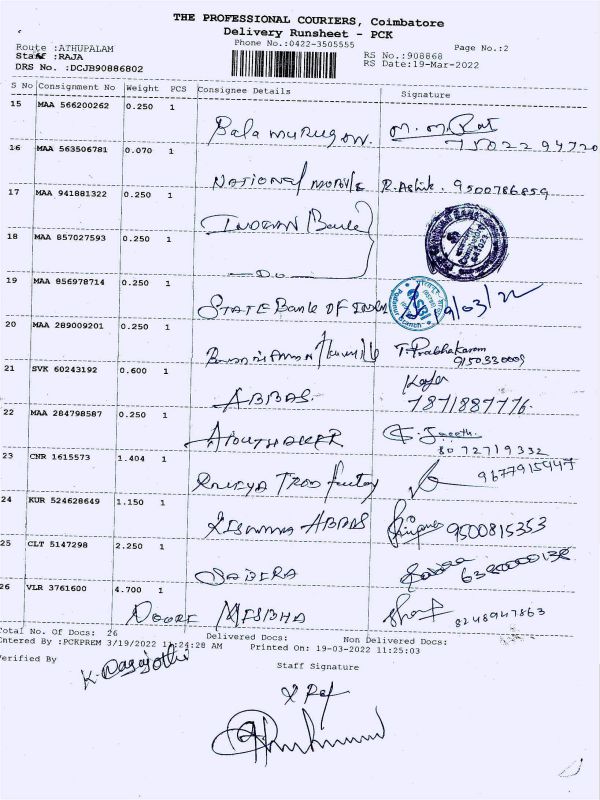 THE PROFESSIONAL COURIERS, Coimbatore
Delivery Runsheet - PCK
Phone No.:0422-3505555
Page No.:2
Route :ATHUPALAM
RS No.:908868
Staff :RAJA
RS Date:19-Mar-2022
DRS No. :DCJB90886802
S No Consignment No Weight PCS Consignee Details Signature
15 MAA 566200262 0.250 1
Bala murugan.
75022 94720
16 MAA 563506781 0.070 1
National R. Ashik. 9500786859
17 MAA 941881322 0.250 1
INDIAN Bank
18 MAA 857027593 0.250 1
- Do -
19 MAA 856978714 0.250 1
STATE Bank OF INDIA SBI 19/03/22
20 MAA 289009201 0.250 1
T. Prabhakaran
9150330009
21 SVK 60243192 0.600 1
ABBAS. 7871887776.
22 MAA 284798587 0.250 1
8072719332
23 CNR 1615573 1.404 1
9677915947
24 KUR 524628649 1.150 1
ABBAS 9500815353
25 CLT 5147298 2.250 1
SABIRA
26 VLR 3761600 4.700 1
MISBHA 8248947863
Total No. Of Docs: 26 Delivered Docs: Non Delivered Docs:
Entered By :PCKPREM 3/19/2022 11:24:28 AM Printed On: 19-03-2022 11:25:03
Verified By
K. Nagajothi
Staff Signature